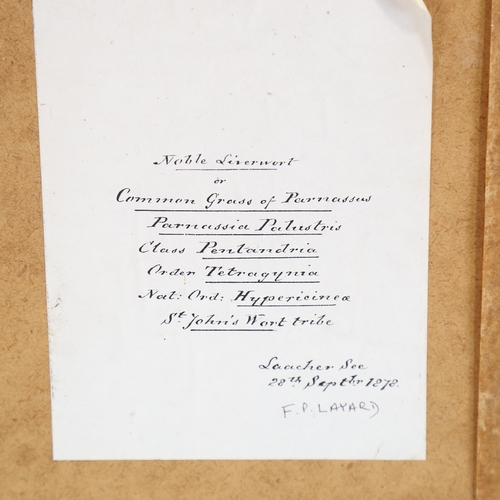 Noble Liverwort
or
Common Grass of Parnassus
Parnassia Palustris
Class Pentandria
Order Tetragynia
Nat: Ord: Hypericineæ
St John's Wort tribe
Laacher See
28th Septbr 1878.
F. P. LAYARD